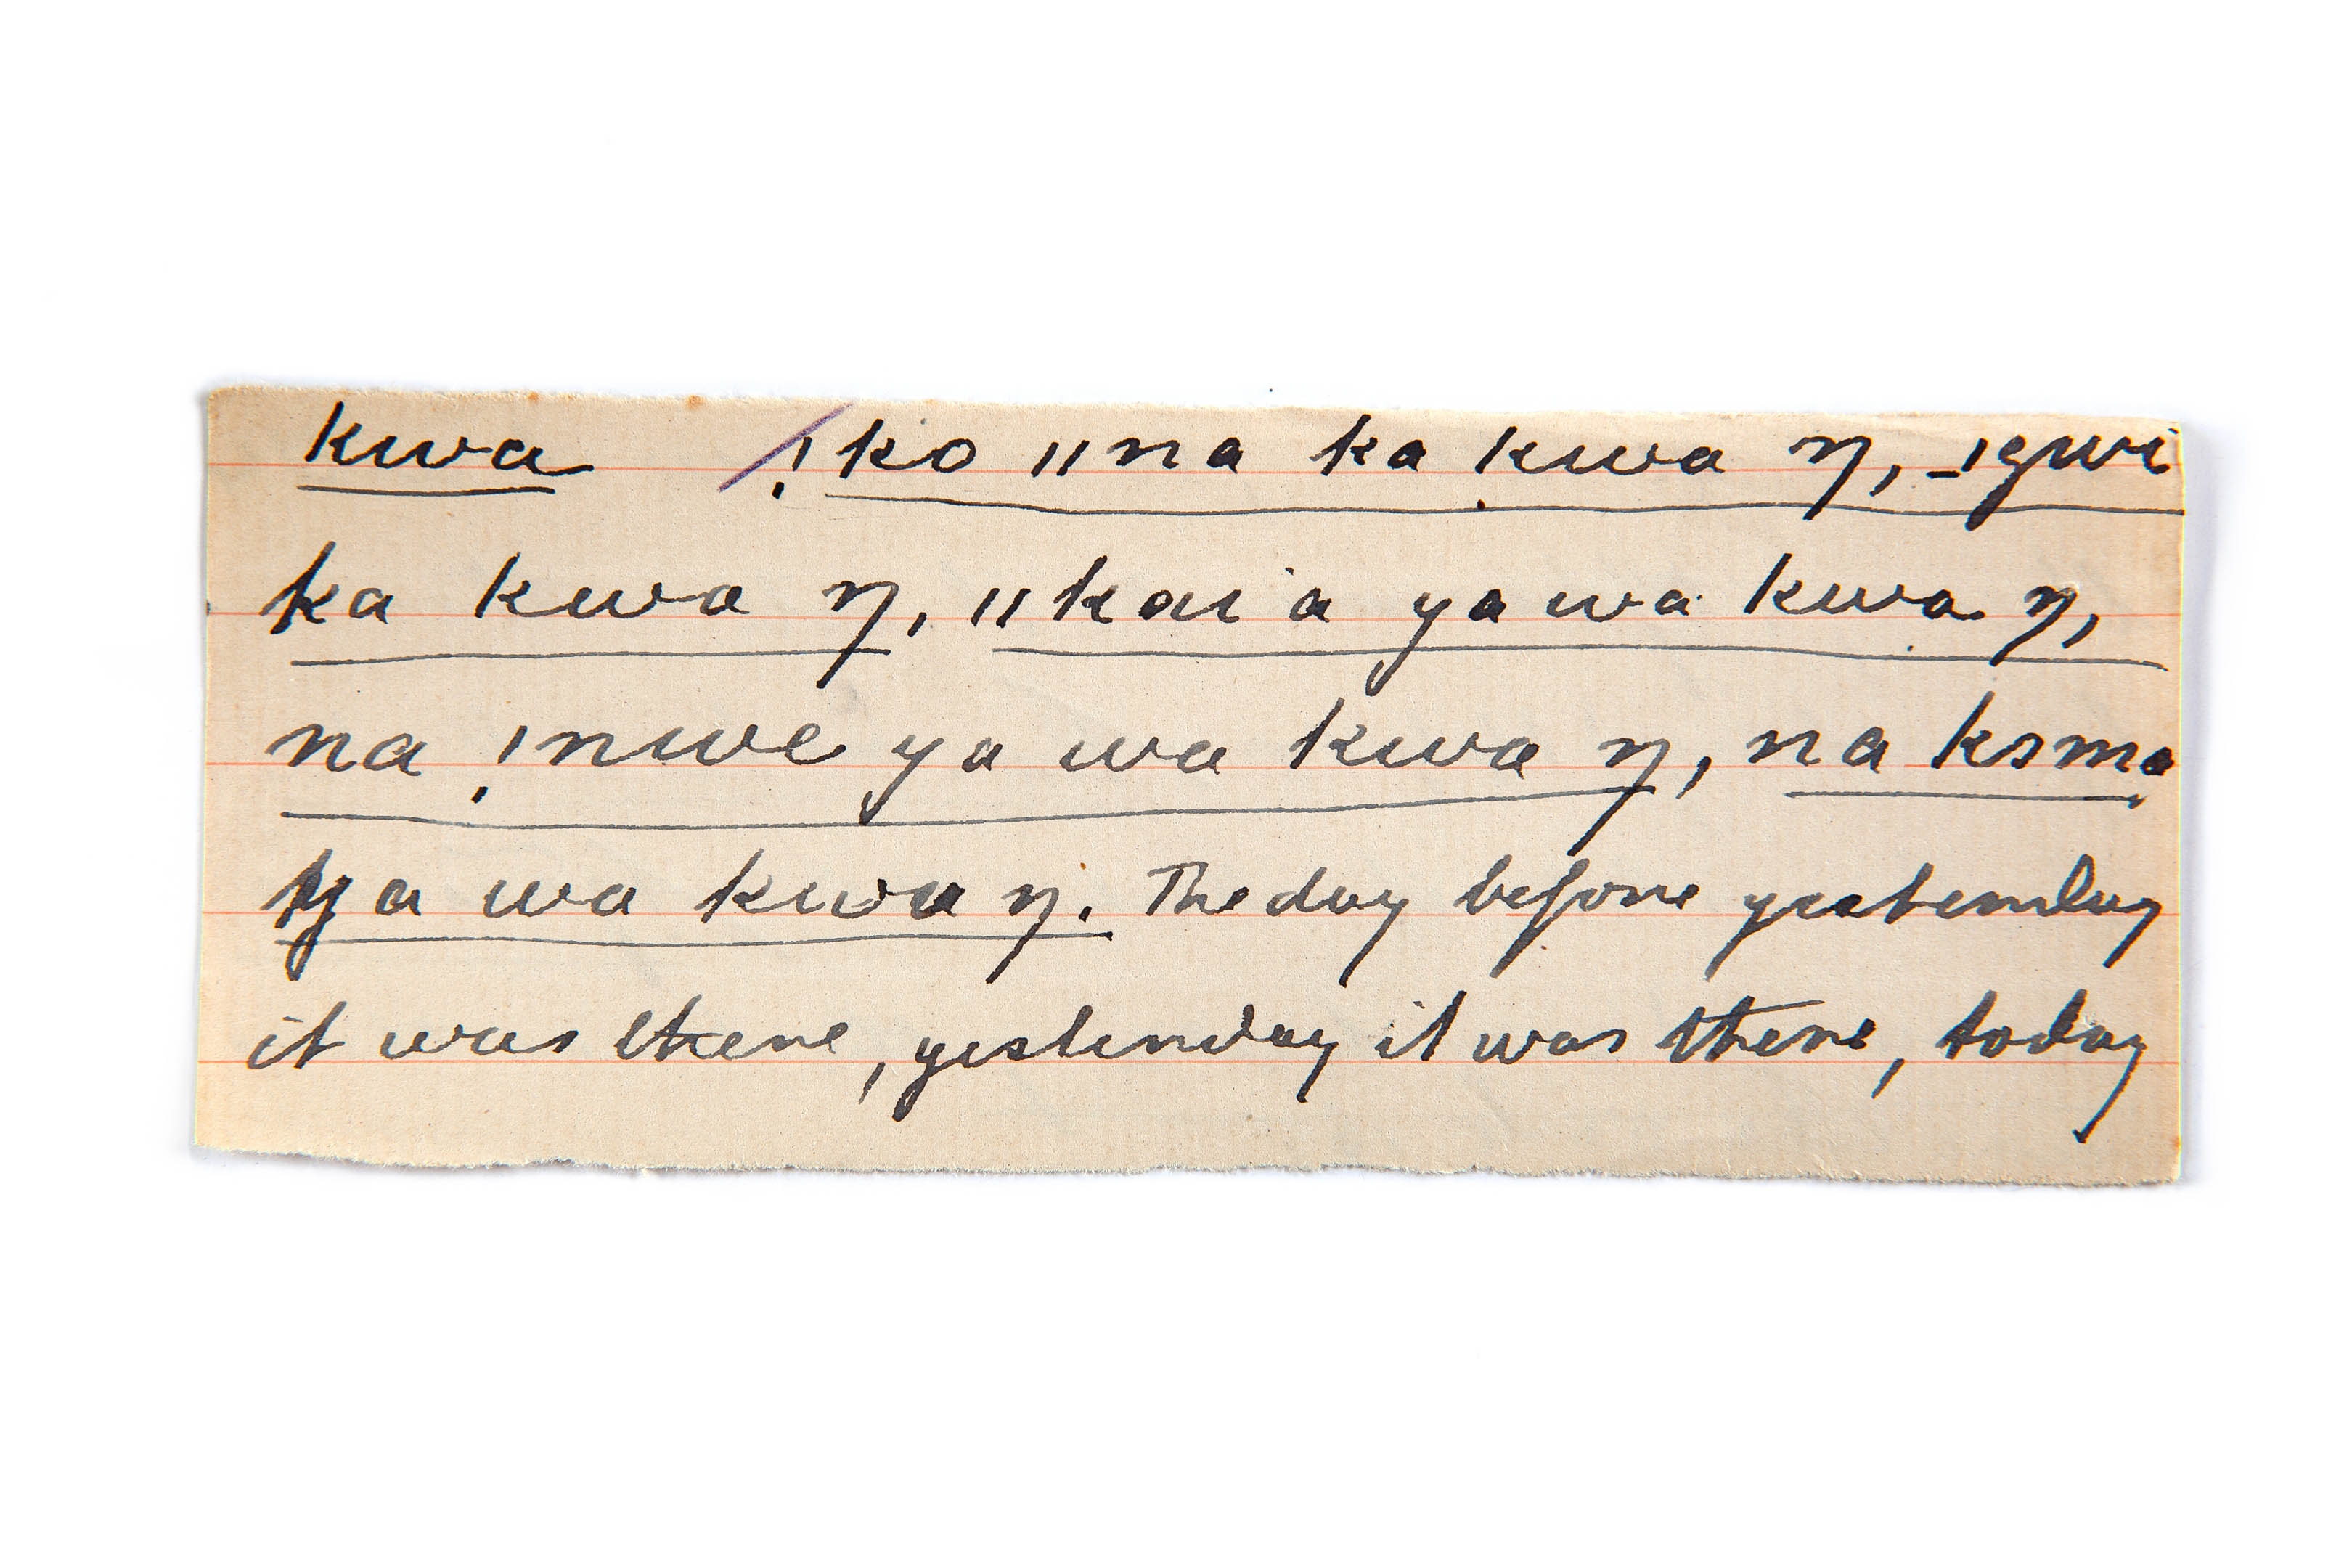 kwa !ko ||na ka kwa ŋ, |gwi
ka kwa ŋ, ||kai'a ya wa kwa ŋ,
na !nwe ya wa kwa ŋ, na ksma
ya wa kwa ŋ. The day before yesterday
it was there, yesterday it was there, today